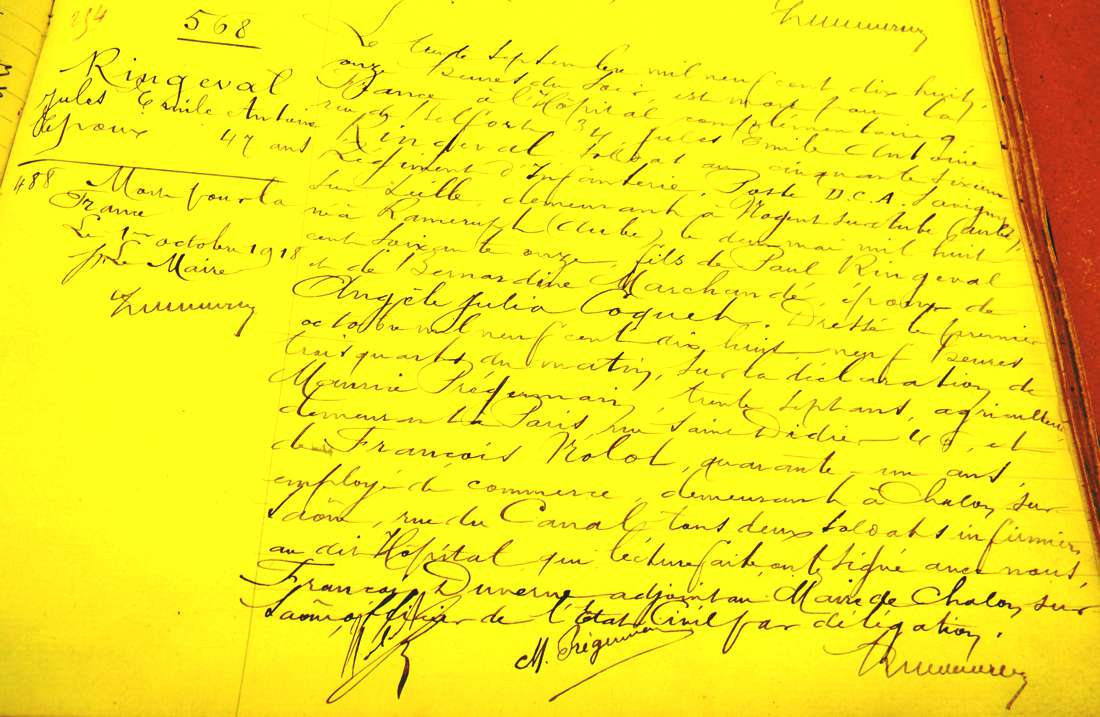 254
568
Ringeval
Jules Emile Antoine
époux 47 ans
488 Mort pour la
France
Le 1er octobre 1918
pr Le Maire
Le trente Septembre mil neuf cent dix huit,
onze heures du Soir est mort pour la
France à l'Hôpital complémentaire 9
rue de Belfort 34 Jules Emile Antoine
Ringeval Soldat au cinquante sixième
Régiment d'Infanterie, Poste D.C.A. Savigny
sur Seille, demeurant à Nogent sur Aube (Aube),
né à Ramerupt (Aube) le deux mai mil huit
cent soixante onze, fils de Paul Ringeval
et de Bernardine Marchandé, époux de
Angèle Julia Coquet. Dressé le premier
octobre mil neuf cent dix huit neuf heures
trois quarts du matin, sur la déclaration de
Maurice Prégerman, trente sept ans, agriculteur
demeurant à Paris, rue Saint Didier 40 et
de François Rolot, quarante-un ans,
employé de commerce, demeurant à Chalon sur
Saône, rue du Canal tous deux soldats infirmiers
au dit Hôpital qui lecture faite ont signé avec nous,
François Duverne adjoint au Maire de Chalon sur
Saône officier de l'Etat Civil par délégation.
M. Prégerman